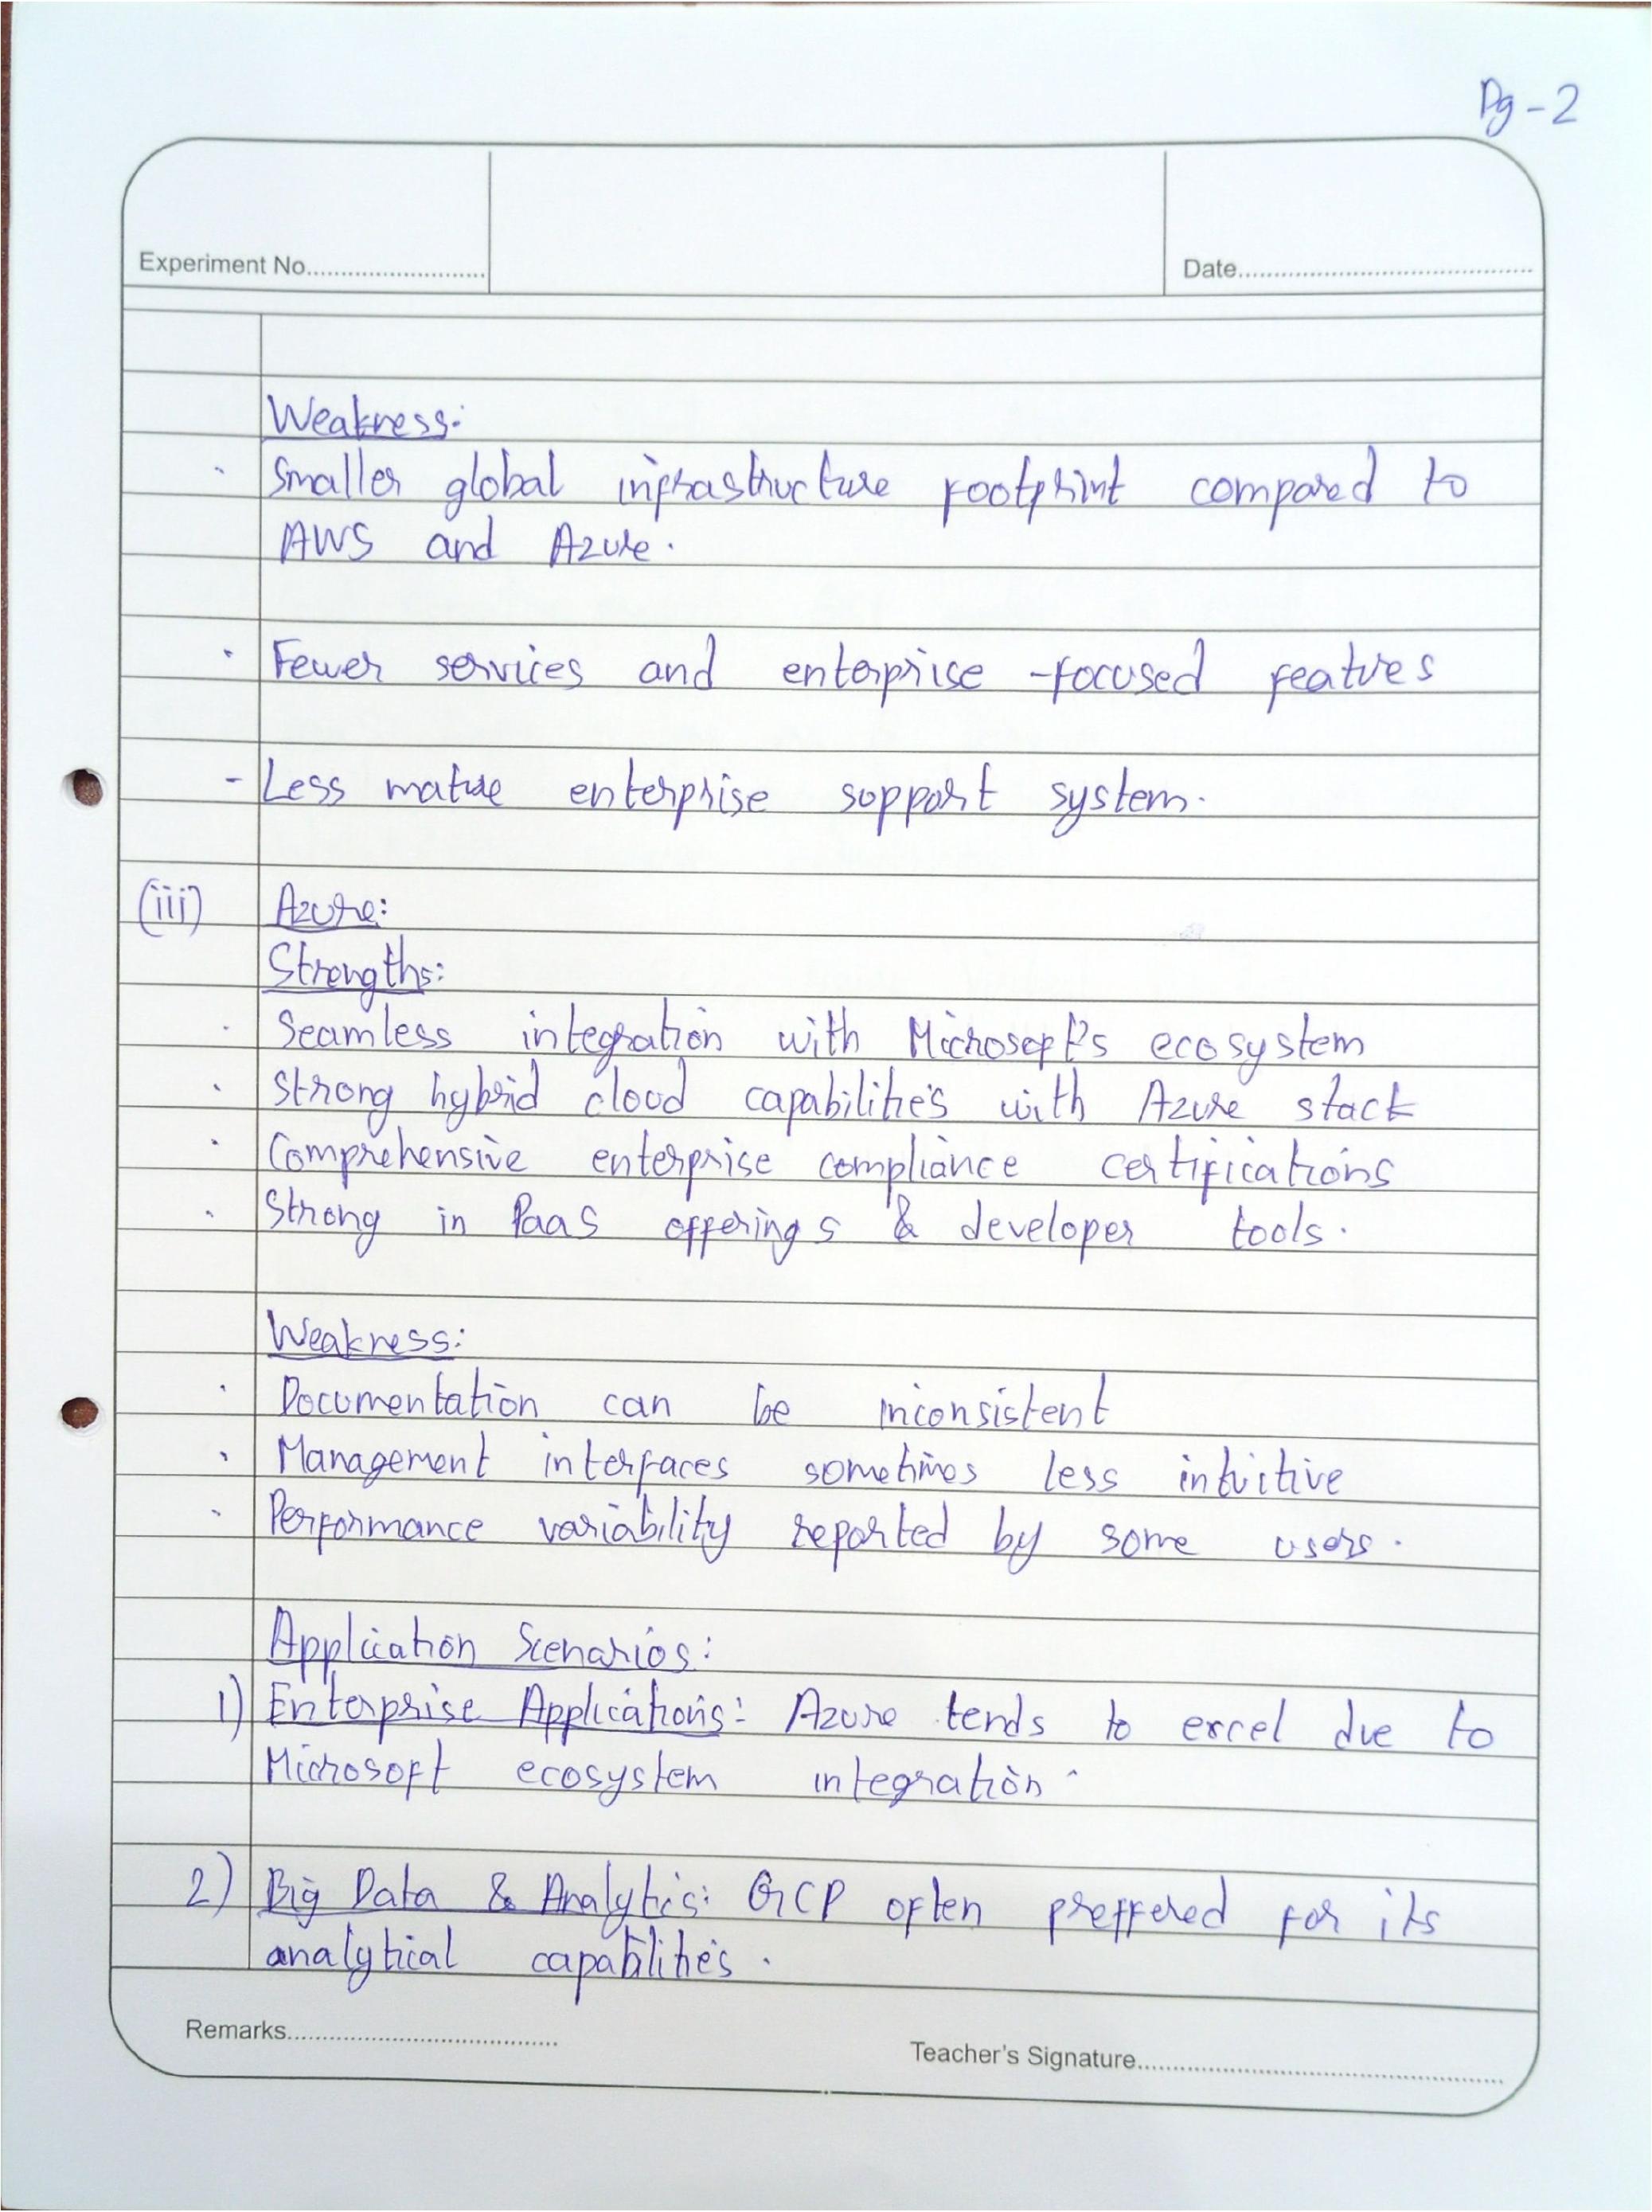 Pg - 2
Experiment No..........................
Date............................................
Weakness:
· Smaller global infrastructure footprint compared to
AWS and Azure.
· Fewer services and enterprise -focused features
- Less mature enterprise support system.
(iii) Azure:
Strengths:
· Seamless integration with Microsoft's ecosystem
· Strong hybrid cloud capabilities with Azure stack
· Comprehensive enterprise compliance certifications
· Strong in PaaS offerings & developer tools.
Weakness:
· Documentation can be inconsistent
· Management interfaces sometimes less intuitive
· Performance variability reported by some users.
Application Scenarios:
1) Enterprise Applications: Azure tends to excel due to
Microsoft ecosystem integration.
2) Big Data & Analytics: GCP often preffered for its
analytical capabilities.
Remarks........................................
Teacher's Signature......................................................